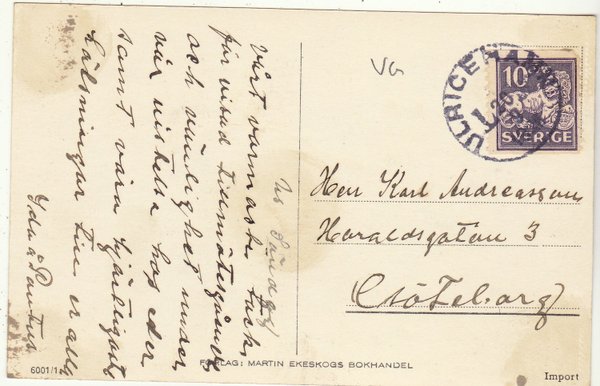 Vårt varmaste tack,
för visad tillmötesgående
och vänlighet under
vår vistelse hos eder
samt våra hjärtligaste
hälsningar till er alla
Ida & Pontus
VG
ULRICEHAMN
10
SVERIGE
Herr Karl Andreasson
Haraldsgatan 3
Göteborg
FÖRLAG: MARTIN EKESKOGS BOKHANDEL
6001/1
Import